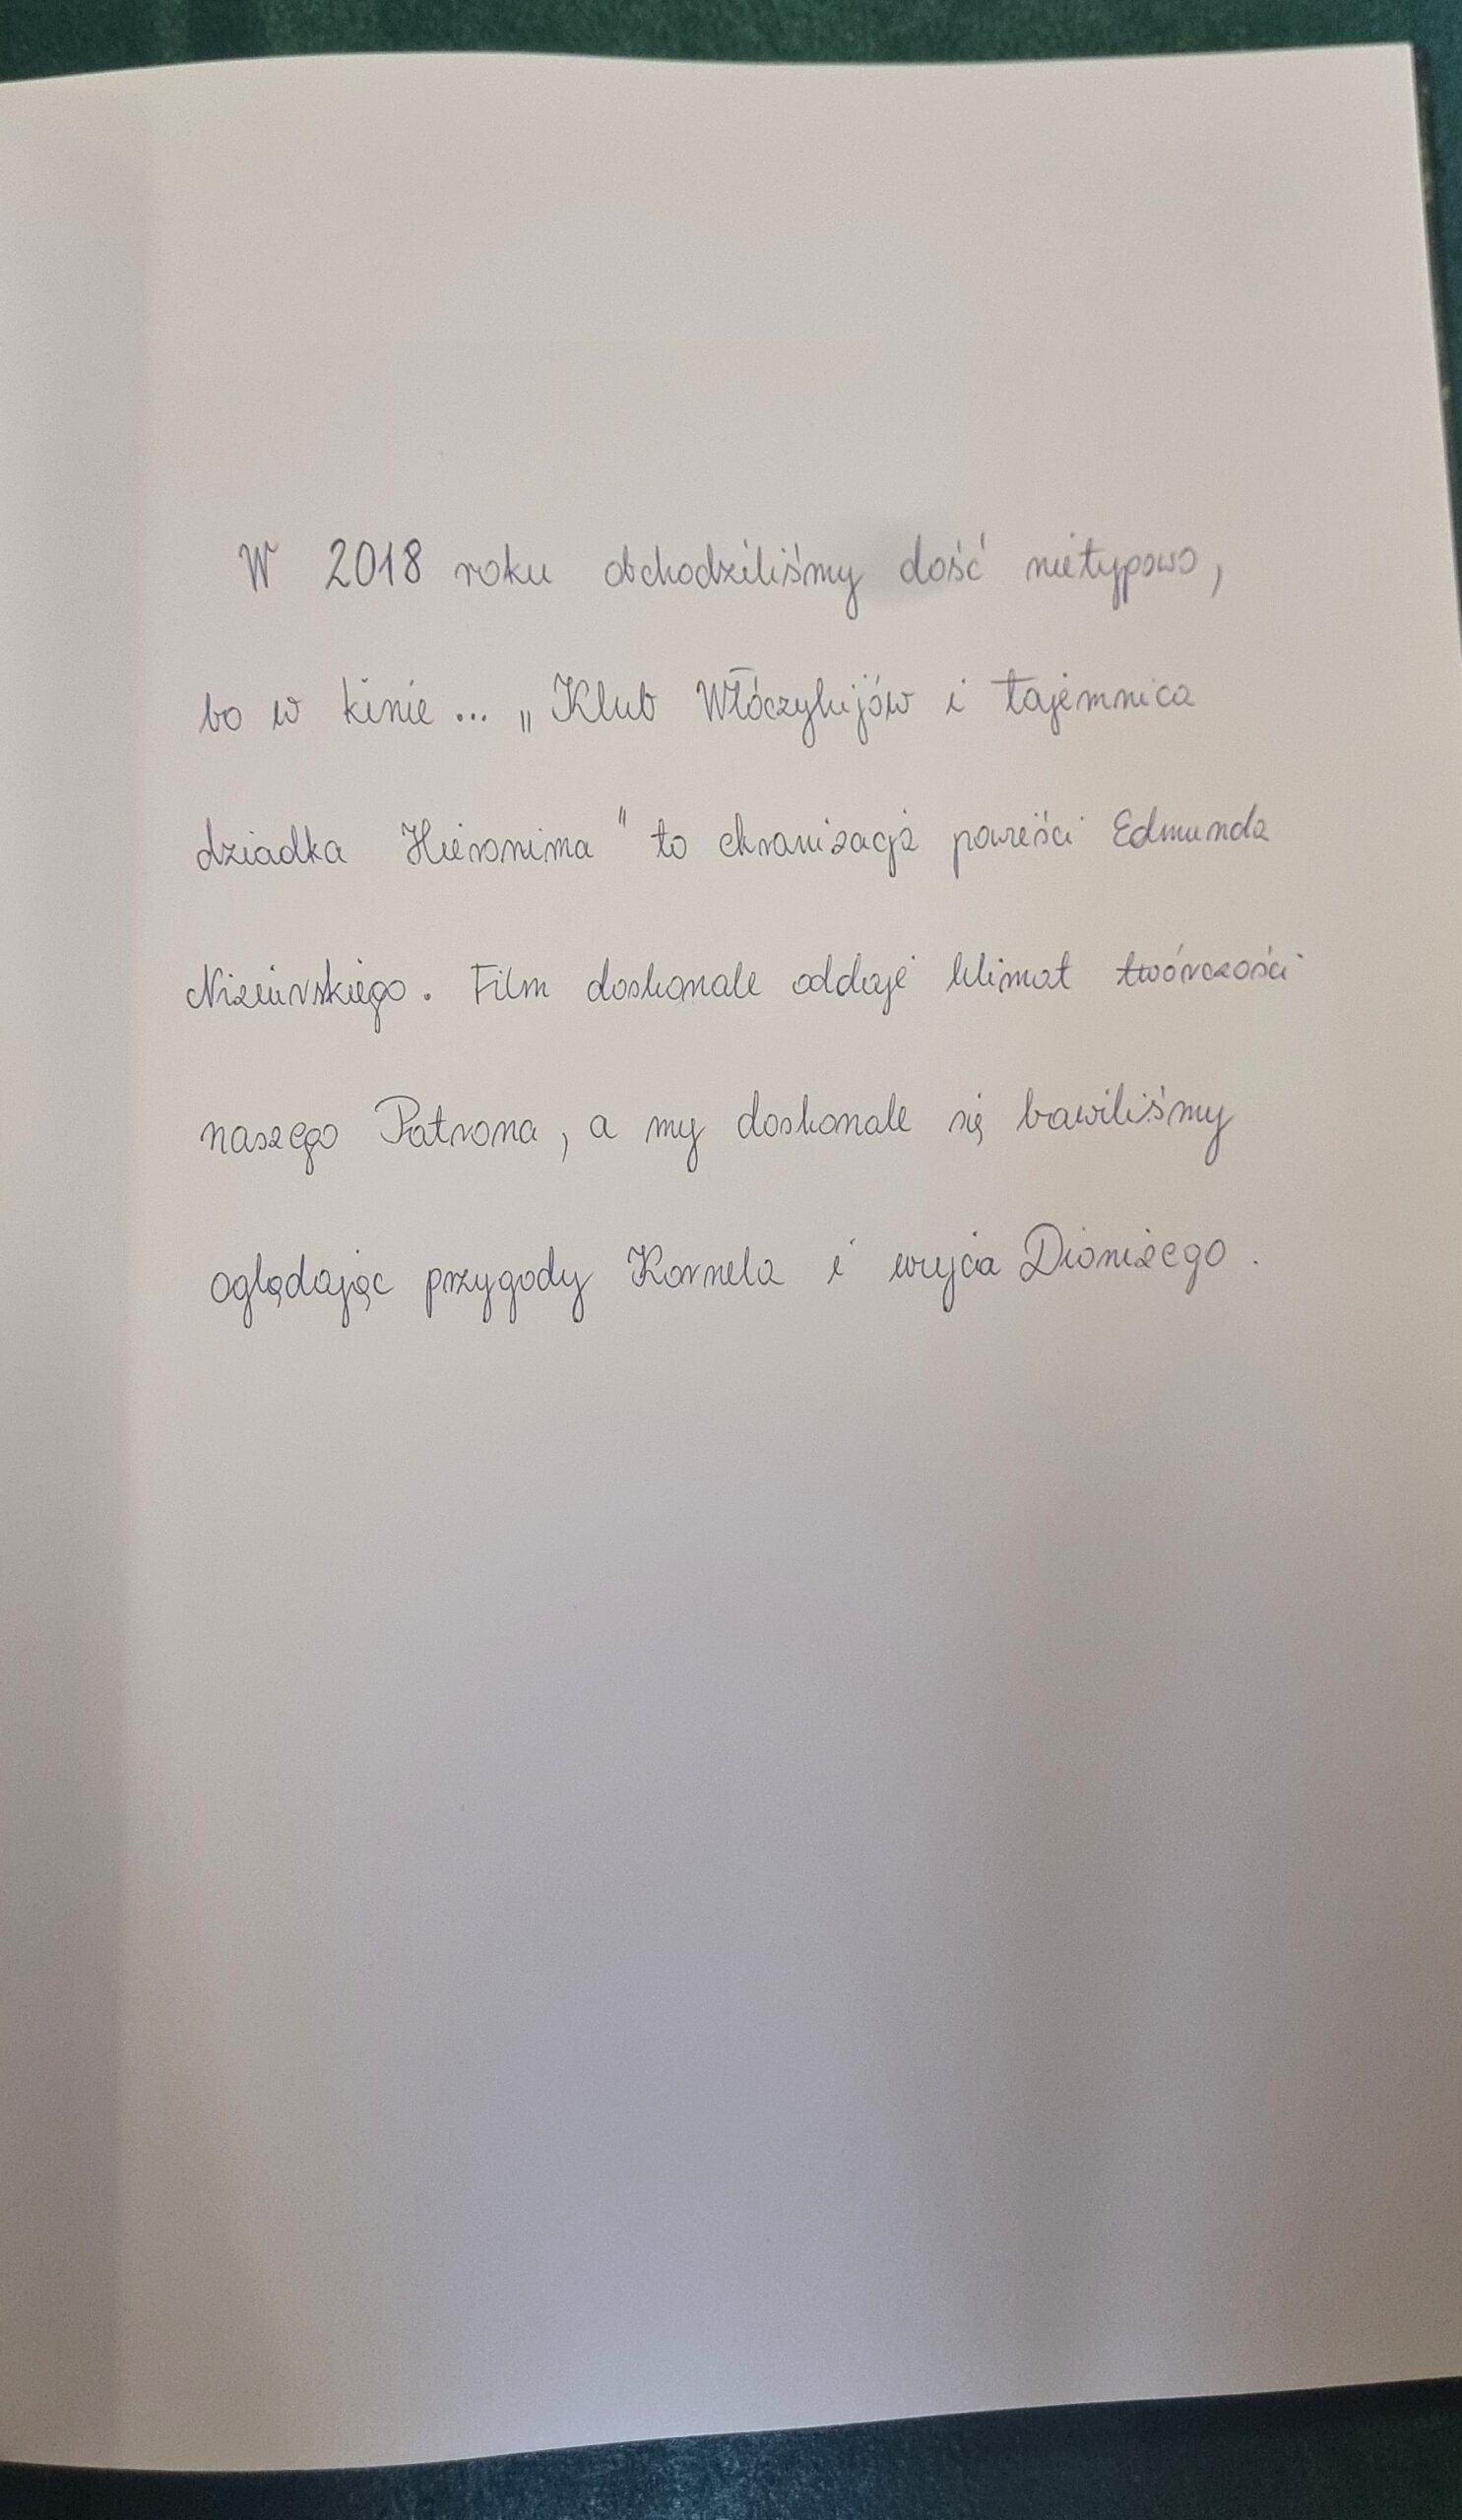 W 2018 roku obchodziliśmy dość nietypowo,
bo w kinie... „Klub Włóczykijów i tajemnica
dziadka Hieronima" to ekranizacja powieści Edmunda
Niziurskiego. Film doskonale oddaje klimat twórczości
naszego Patrona, a my doskonale się bawiliśmy
oglądając przygody Kornela i wujcia Dionizego.